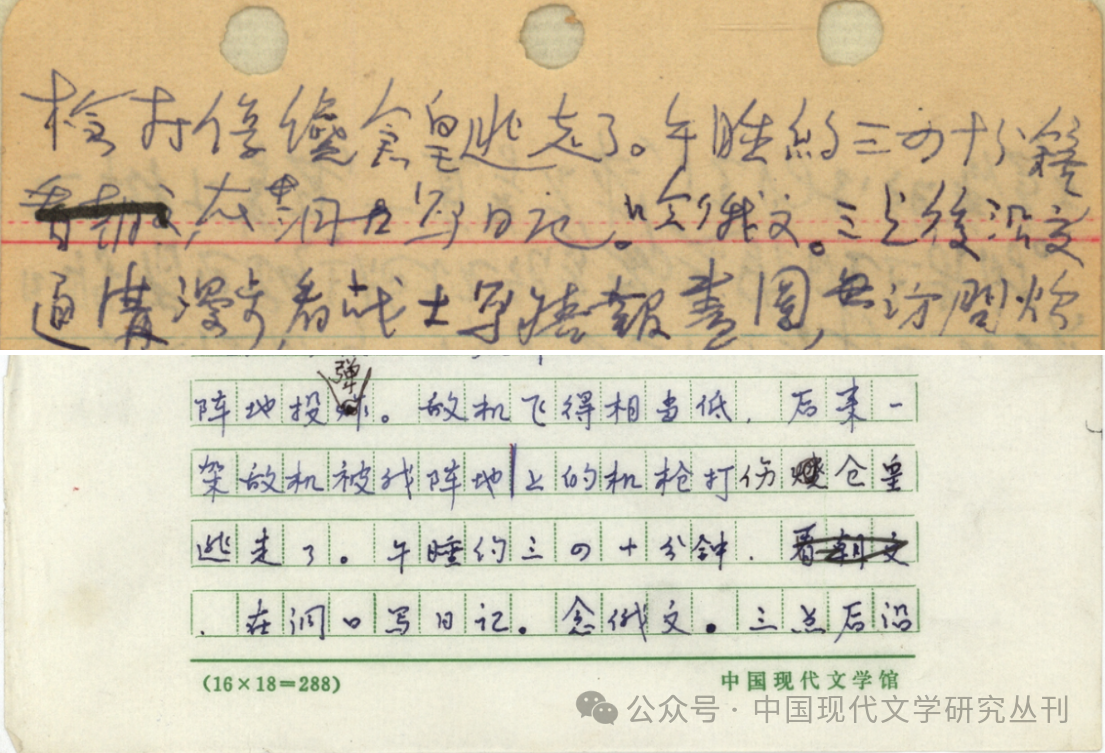 枪打伤,仓皇逃走了。午睡約三四十分鐘
看朝文,在洞口写日记。念俄文。三点後沿交
通溝漫步,看战士写墙報畫圖,並访問炊
弹
阵地投炸。敌机飞得相当低.后来一
架敌机被我阵地上的机枪打伤仓皇
逃走了。午睡约三四十分钟.看朝文
.在洞口写日记。念俄文。三点后沿
(16×18=288)
中国现代文学馆
公众号·中国现代文学研究丛刊